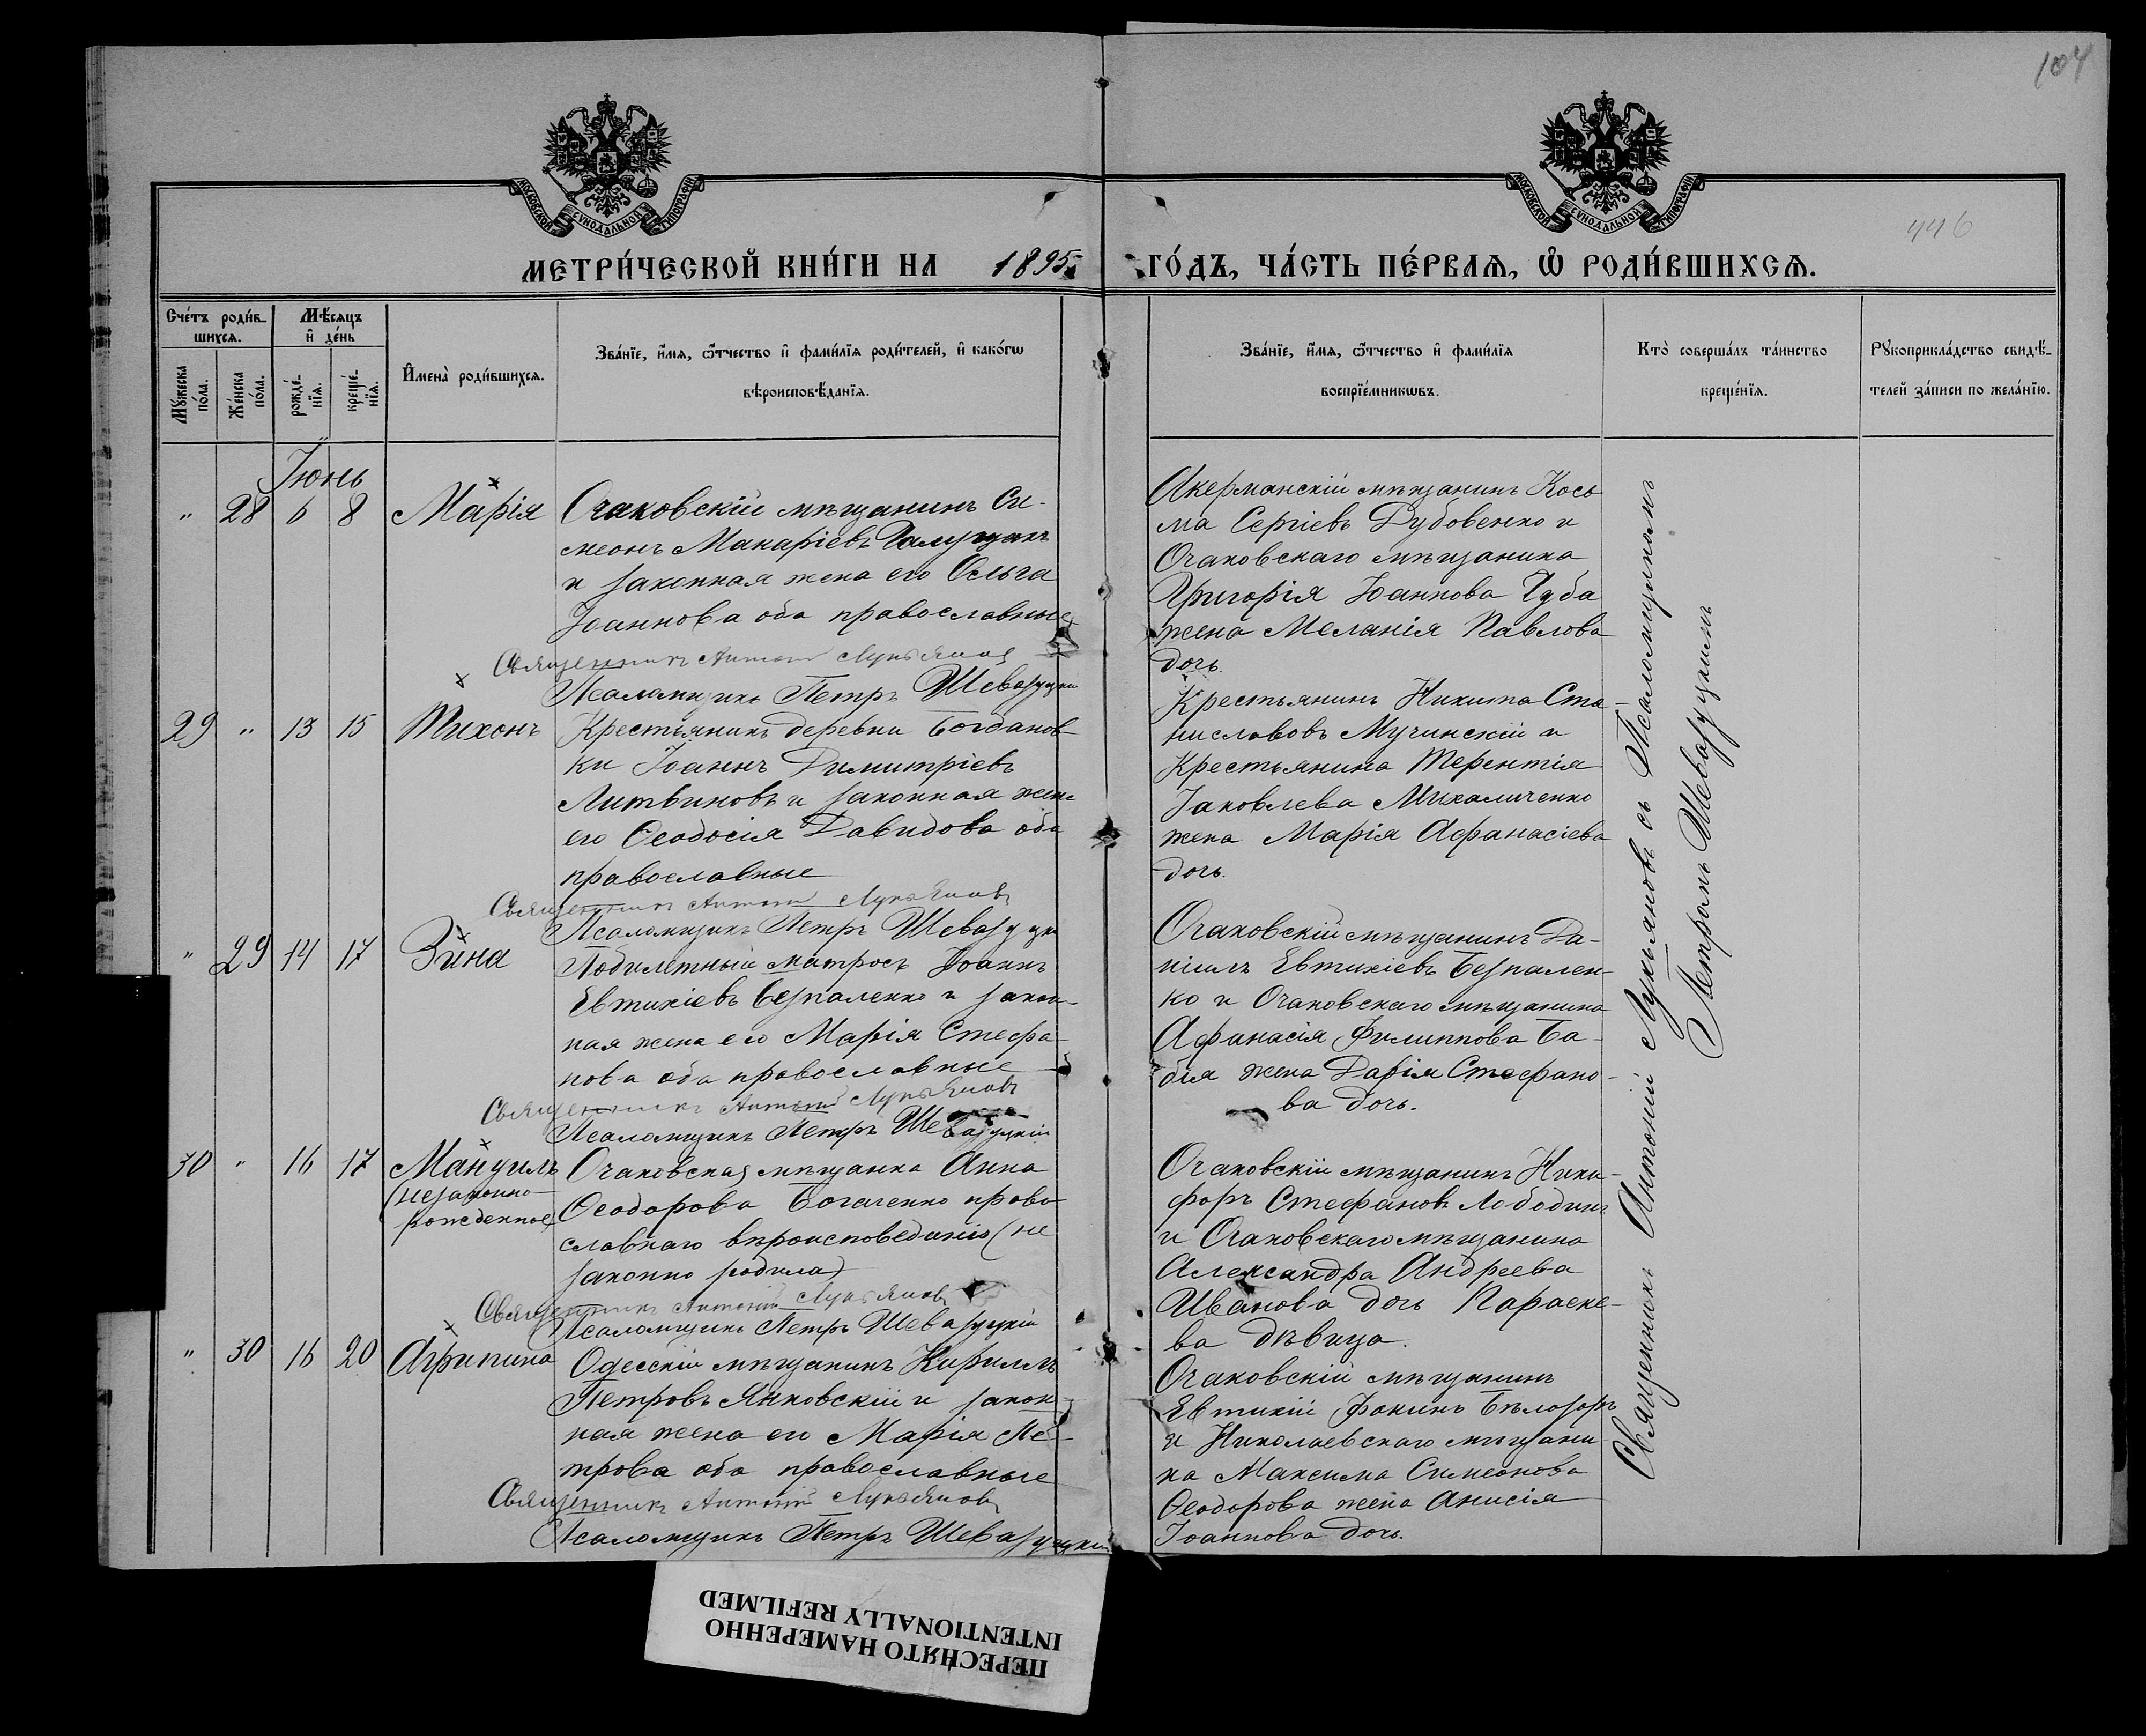 104
446
МОСКОВСКОЙ СѴНОДАЛЬНОЙ ТИПОГРАФІИ
МОСКОВСКОЙ СѴНОДАЛЬНОЙ ТИПОГРАФІИ
МЕТРИ́ЧЕСКОЙ КНИ́ГИ НА 1895 ГО́ДЪ, ЧА́СТЬ ПЕ́РВАѦ, Ѡ҆ РОДИ́ВШИХСѦ.
Сче́тъ роди́в-
шихсѧ.
Мꙋжеска
по́ла.
Же́нска
по́ла.
Мѣ́сѧцъ
и҆ де́нь
рожде́-
нїѧ.
креще́-
нїѧ.
И҆мена̀ роди́вшихсѧ.
Зва́нїе, и҆́мѧ, ѻ҆́тчество и҆ фами́лїѧ роди́телей, и҆ како́гѡ
вѣроисповѣ́данїѧ.
Зва́нїе, и҆́мѧ, ѻ҆́тчество и҆ фами́лїѧ
воспрїе́мникѡвъ.
Кто̀ соверша́лъ та́инство
креще́нїѧ.
Рꙋкоприкла́дство свидѣ́-
телей за́писи по жела́нїю.
Іюнь
" 28 6 8 Марія
Очаковскій мѣщанинъ Си-
меонъ Макаріевъ
и законная жена его Ольга
Іоаннова оба православные
Священникъ Антоній Лукьяновъ
Псаломщикъ Петръ Шевазуцкій
Акерманскій мѣщанинъ Кось
ма Сергіевъ Дубовенко и
Очаковскаго мѣщанина
Григорія Іоаннова Чуба
жена Меланія Павлова
дочь.
29 " 13 15 Тихонъ
Крестьянинъ деревни Богданов-
ки Іоаннъ Димитріевъ
Литвиновъ и законная жена
его Ѳеодосія Давидова оба
православные
Священникъ Антоній Лукьяновъ
Псаломщикъ Петръ Шевазуцкій
Крестьянинъ Никита Ста-
ниславовъ Мучинскій и
Крестьянина Терентія
Іаковлева Михаличенко
жена Марія Афанасіева
дочь.
" 29 14 17 Зина
Побилетный матросъ Іоаннъ
Евтихіевъ Безпаленко и закон-
ная жена его Марія Стефа-
нова оба православные
Священникъ Антоній Лукьяновъ
Псаломщикъ Петръ Шевазуцкій
Очаковскій мѣщанинъ Да-
ніилъ Евтихіевъ Безпален-
ко и Очаковскаго мѣщанина
Афанасія Филиппова Ба-
бія жена Дарія Стефано-
ва дочь.
30 " 16 17 Мануилъ
(незаконно-
рожденное)
Очаковская мѣщанка Анна
Ѳеодорова Богаченко право
славнаго вѣроисповеданія (не
законно родила)
Священникъ Антоній Лукьяновъ
Псаломщикъ Петръ Шевазуцкій
Очаковскій мѣщанинъ Ники-
форъ Стефановъ Лободинъ
и Очаковскаго мѣщанина
Александра Андреева
Иванова дочь Параске-
ва дѣвица.
" 30 16 20 Агрипина
Одесскій мѣщанинъ Кириллъ
Петровъ Янковскій и закон
ная жена его Марія Пе-
трова оба православные
Священникъ Антоній Лукьяновъ
Псаломщикъ Петръ Шевазуцкій
Очаковскій мѣщанинъ
Евтихій Фокинъ Бѣлозоръ
и Николаевскаго мѣщани
на Максима Симеонова
Ѳеодорова жена Анисія
Іоаннова дочь.
Священникъ Антоній Лукьяновъ съ Псаломщикомъ
Петромъ Шевазуцкимъ
ПЕРЕСНЯТО НАМЕРЕННО
INTENTIONALLY REFILMED